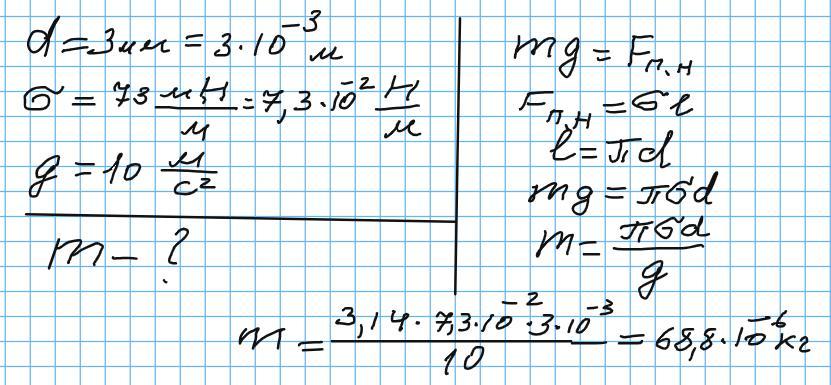 d = 3мм = 3·10⁻³ м
σ = 73 мН/м = 7,3·10⁻² Н/м
g = 10 м/с²
m – ?
mg = Fп.н
Fп.н = σl
l = πd
mg = πσd
m = πσd/g
m = 3,14·7,3·10⁻²·3·10⁻³/10 = 68,8·10⁻⁶ кг